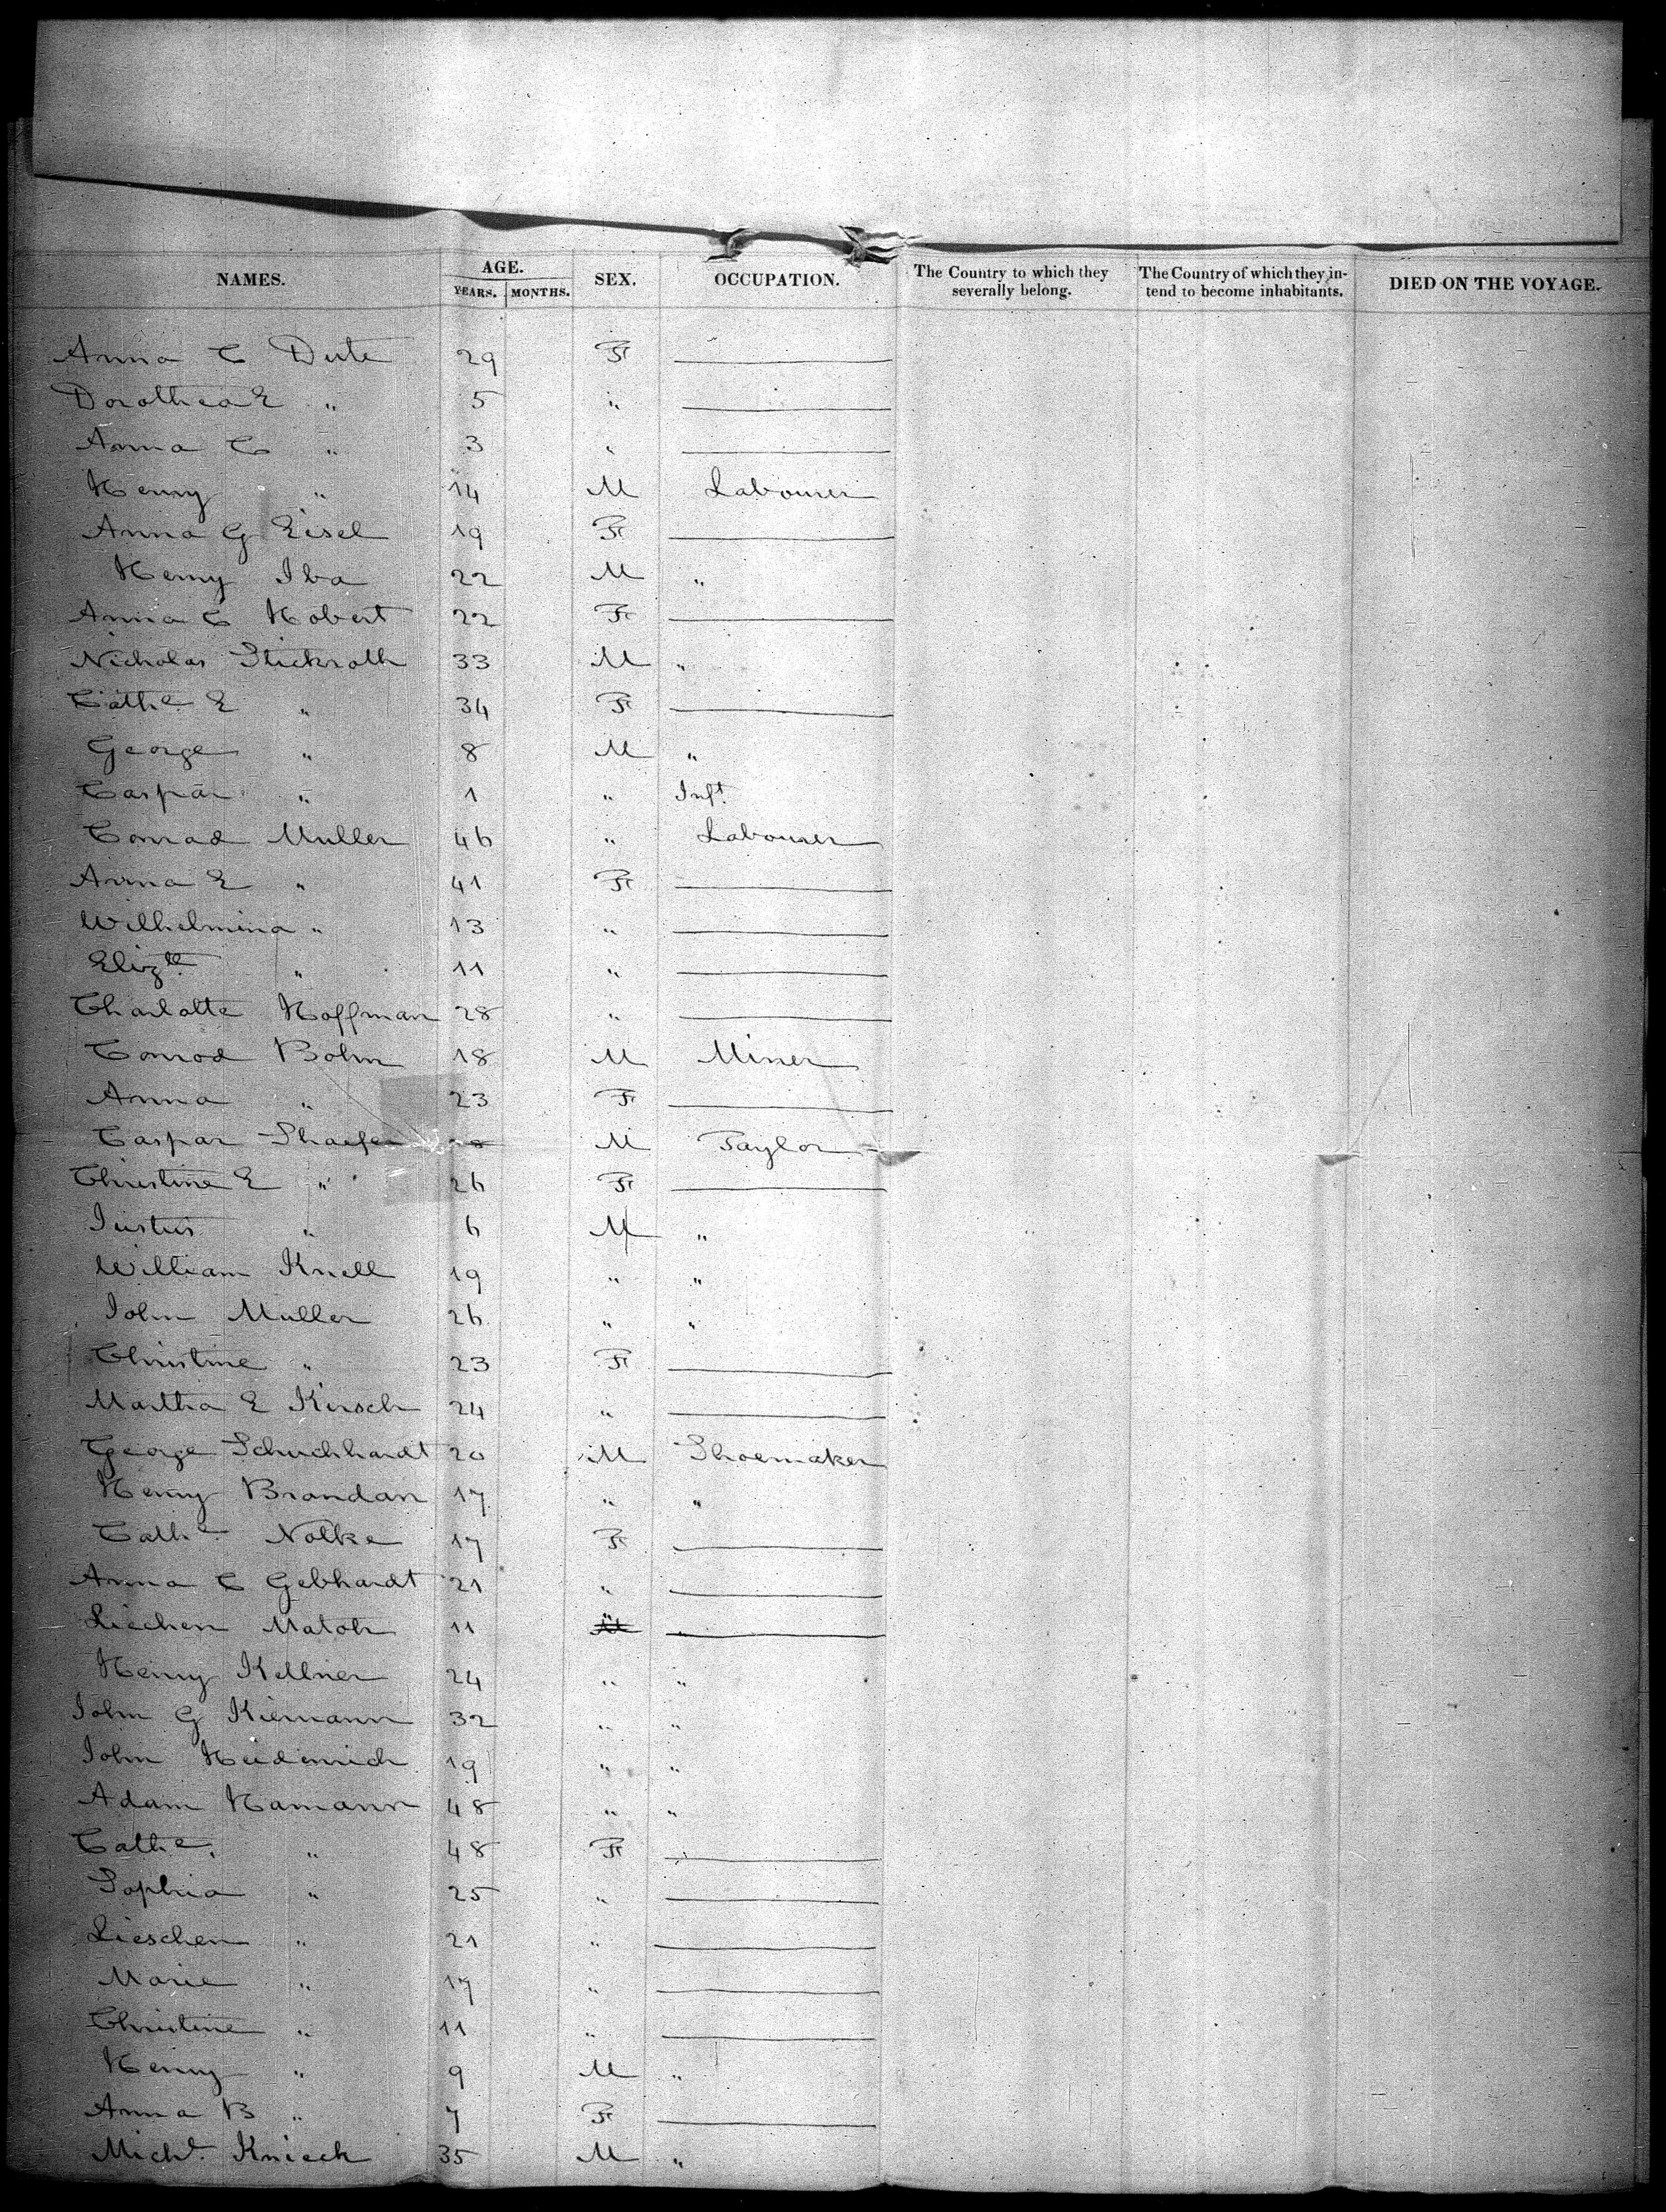 NAMES. AGE. YEARS. MONTHS. SEX. OCCUPATION. The Country to which they severally belong. The Country of which they intend to become inhabitants. DIED ON THE VOYAGE.
Anna C Dute 29 F
Dorothea E " 5 "
Anna C " 3 "
Henry " 14 M Labourer
Anna G Eisel 19 F
Henry Iba 22 M "
Anna C Hobert 22 F
Nicholas Stickroth 33 M "
Cathe E " 34 F
George " 8 M "
Caspar " 1 " Inft
Conrad Muller 46 " Labourer
Anna E " 41 F
Wilhelmina " 13 "
Elizth " 11 "
Charlotte Hoffman 28 "
Conrad Bohm 18 M Miner
Anna " 23 F
Caspar Shaefer M Taylor
Christine E " 26 F
Justus " 6 M "
William Knell 19 " "
John Muller 26 " "
Christine " 23 F
Martha E Kirsch 24 "
George Schuchhardt 20 M Shoemaker
Henry Brandan 17 " "
Cathe Nolke 17 F
Anna C Gebhardt 21 "
Liechen 11 "
Henry Kellner 24 " "
John G Kiemann 32 " "
John Heidenrich 19 " "
Adam Hamann 48 " "
Cathe " 48 F
Sophia " 25 "
Lieschen " 21 "
Marie " 17 "
Christine " 11 "
Henry " 9 M "
Anna B " 7 F
Michl Knieck 35 M "